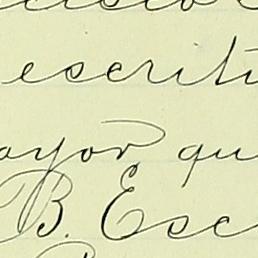 escritu
ayor qu
B. Esc